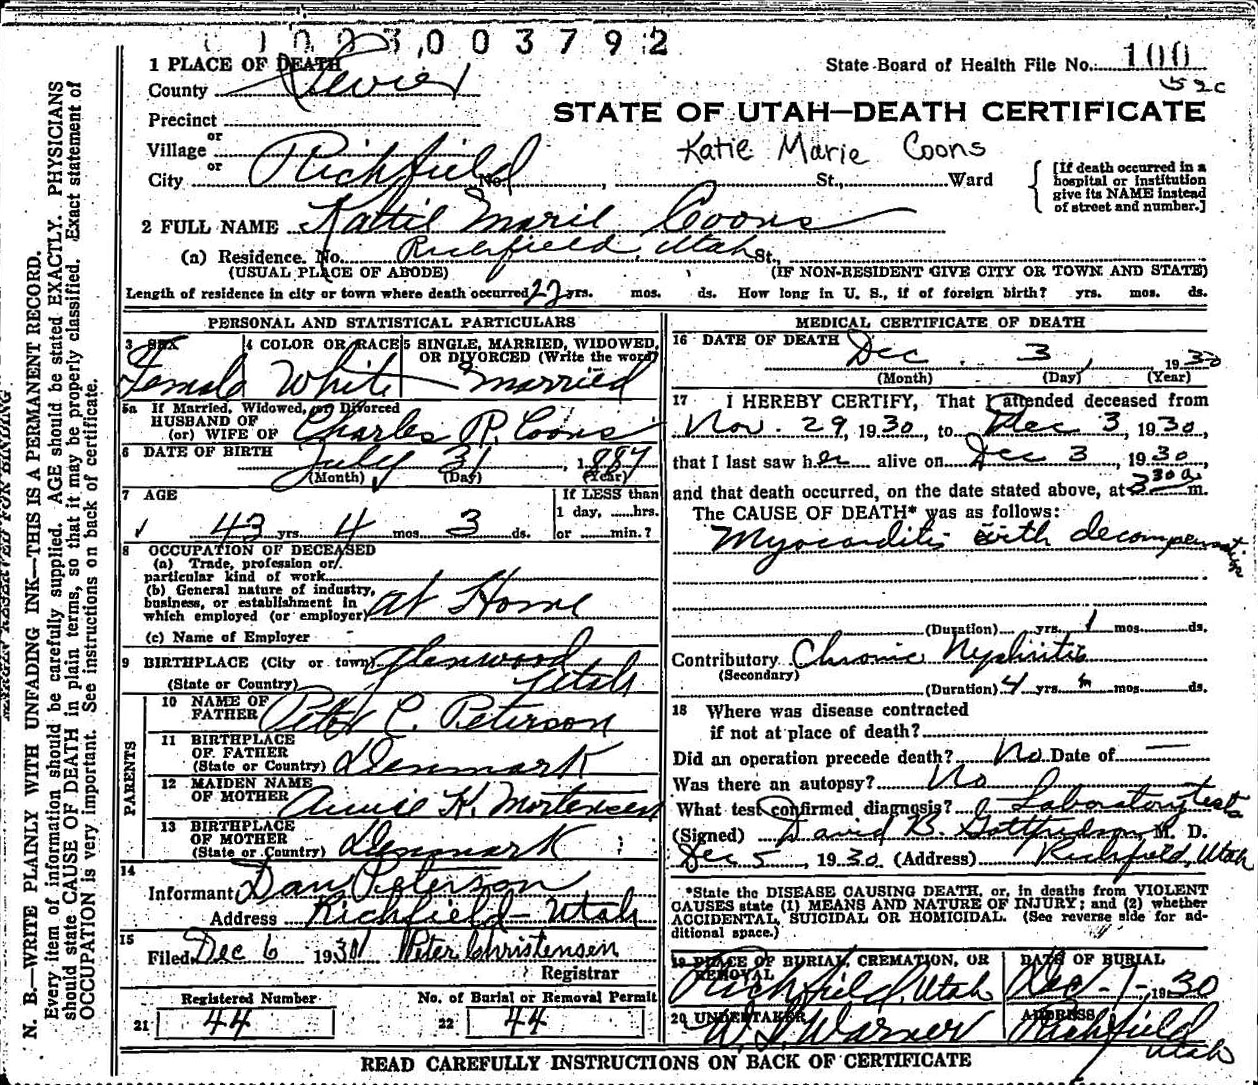 1003003792
1 PLACE OF DEATH
State Board of Health File No. 100
County Sevier
52c
STATE OF UTAH—DEATH CERTIFICATE
Precinct
or
Village
Katie Marie Coons
or
City Richfield No. , St., Ward
[If death occurred in a hospital or institution give its NAME instead of street and number.]
2 FULL NAME Kattie Marie Coons
(a) Residence. No. Richfield, Utah St.,
(USUAL PLACE OF ABODE) (IF NON-RESIDENT GIVE CITY OR TOWN AND STATE)
Length of residence in city or town where death occurred 22 yrs. mos. ds. How long in U. S., if of foreign birth? yrs. mos. ds.
PERSONAL AND STATISTICAL PARTICULARS
3 SEX 4 COLOR OR RACE 5 SINGLE, MARRIED, WIDOWED,
OR DIVORCED (Write the word)
Female White Married
5a If Married, Widowed, or Divorced
HUSBAND OF
(or) WIFE OF Charles P. Coons
6 DATE OF BIRTH July 31, 1887
(Month) (Day) (Year)
7 AGE
If LESS than
1 day, ......hrs.
43 yrs. 4 mos. 3 ds. or ......min.?
8 OCCUPATION OF DECEASED
(a) Trade, profession or
particular kind of work
(b) General nature of industry,
business, or establishment in
which employed (or employer) at Home
(c) Name of Employer
9 BIRTHPLACE (City or town) Glenwood
(State or Country) Utah
PARENTS
10 NAME OF
FATHER Peter C. Peterson
11 BIRTHPLACE
OF FATHER
(State or Country) Denmark
12 MAIDEN NAME
OF MOTHER Annie K. Mortensen
13 BIRTHPLACE
OF MOTHER
(State or Country) Denmark
14
Informant Dan Peterson
Address Richfield Utah
15
Filed Dec 6 1930 Peter Christensen
Registrar
Registered Number No. of Burial or Removal Permit
21 44 22 44
MEDICAL CERTIFICATE OF DEATH
16 DATE OF DEATH
Dec. 3, 1930
(Month) (Day) (Year)
17 I HEREBY CERTIFY, That I attended deceased from
Nov. 29, 1930, to Dec 3, 1930,
that I last saw her alive on Dec 3, 1930
and that death occurred, on the date stated above, at 3 30 a m.
The CAUSE OF DEATH* was as follows:
Myocarditis with decompensation
(Duration) yrs. 1 mos. ds.
Contributory Chronic Nephritis
(Secondary)
(Duration) 4 yrs. mos. ds.
18 Where was disease contracted
if not at place of death?
Did an operation precede death? No Date of —
Was there an autopsy? No
What test confirmed diagnosis? Laboratory tests
(Signed) David B. Gottfredson, M. D.
Dec 5, 1930 (Address) Richfield, Utah
*State the DISEASE CAUSING DEATH, or, in deaths from VIOLENT
CAUSES state (1) MEANS AND NATURE OF INJURY; and (2) whether
ACCIDENTAL, SUICIDAL OR HOMICIDAL. (See reverse side for ad-
ditional space.)
19 PLACE OF BURIAL, CREMATION, OR REMOVAL DATE OF BURIAL
Richfield, Utah Dec-7-1930
20 UNDERTAKER ADDRESS
Warner Richfield
Utah
READ CAREFULLY INSTRUCTIONS ON BACK OF CERTIFICATE
MARGIN RESERVED FOR BINDING
N. B.—WRITE PLAINLY WITH UNFADING INK—THIS IS A PERMANENT RECORD.
Every item of information should be carefully supplied. AGE should be stated EXACTLY. PHYSICIANS
should state CAUSE OF DEATH in plain terms, so that it may be properly classified. Exact statement of
OCCUPATION is very important. See instructions on back of certificate.